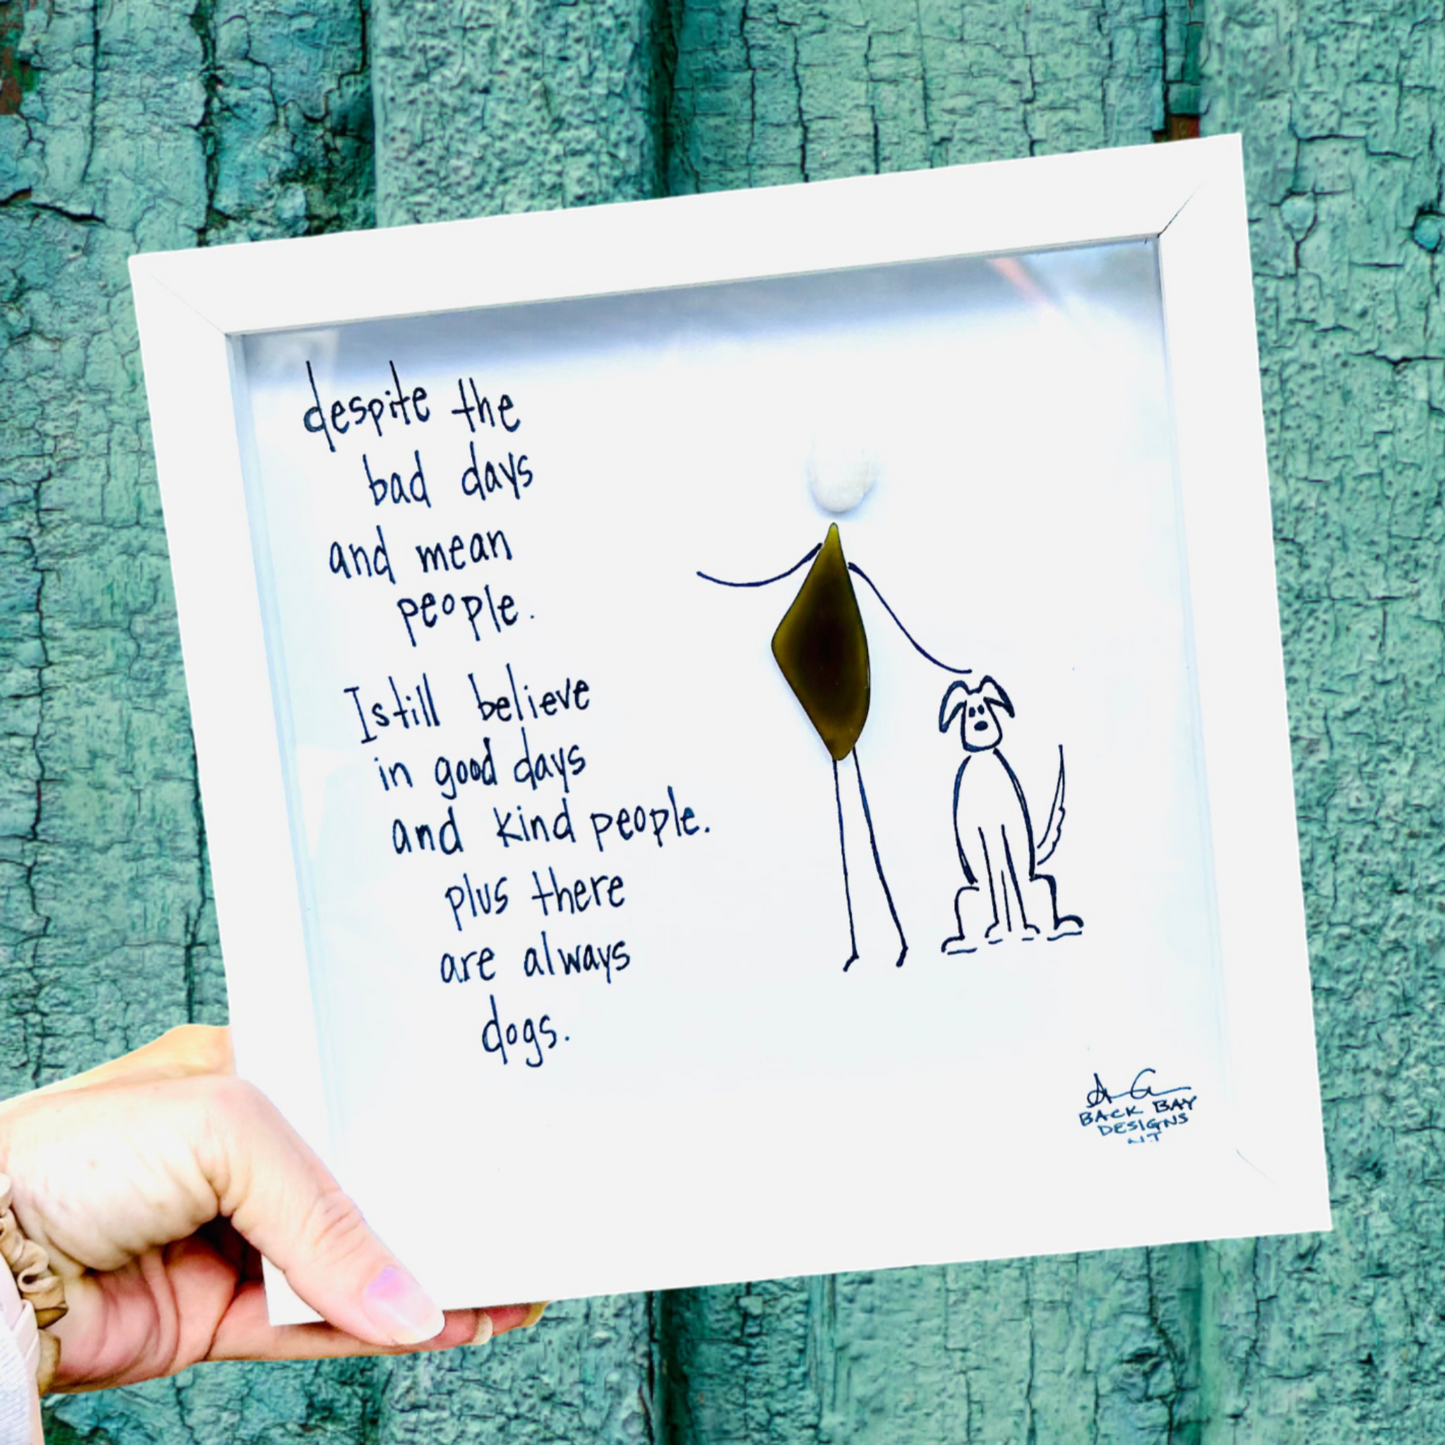 despite the
bad days
and mean
people.
I still believe
in good days
and kind people.
plus there
are always
dogs.
BACK BAY
DESIGNS